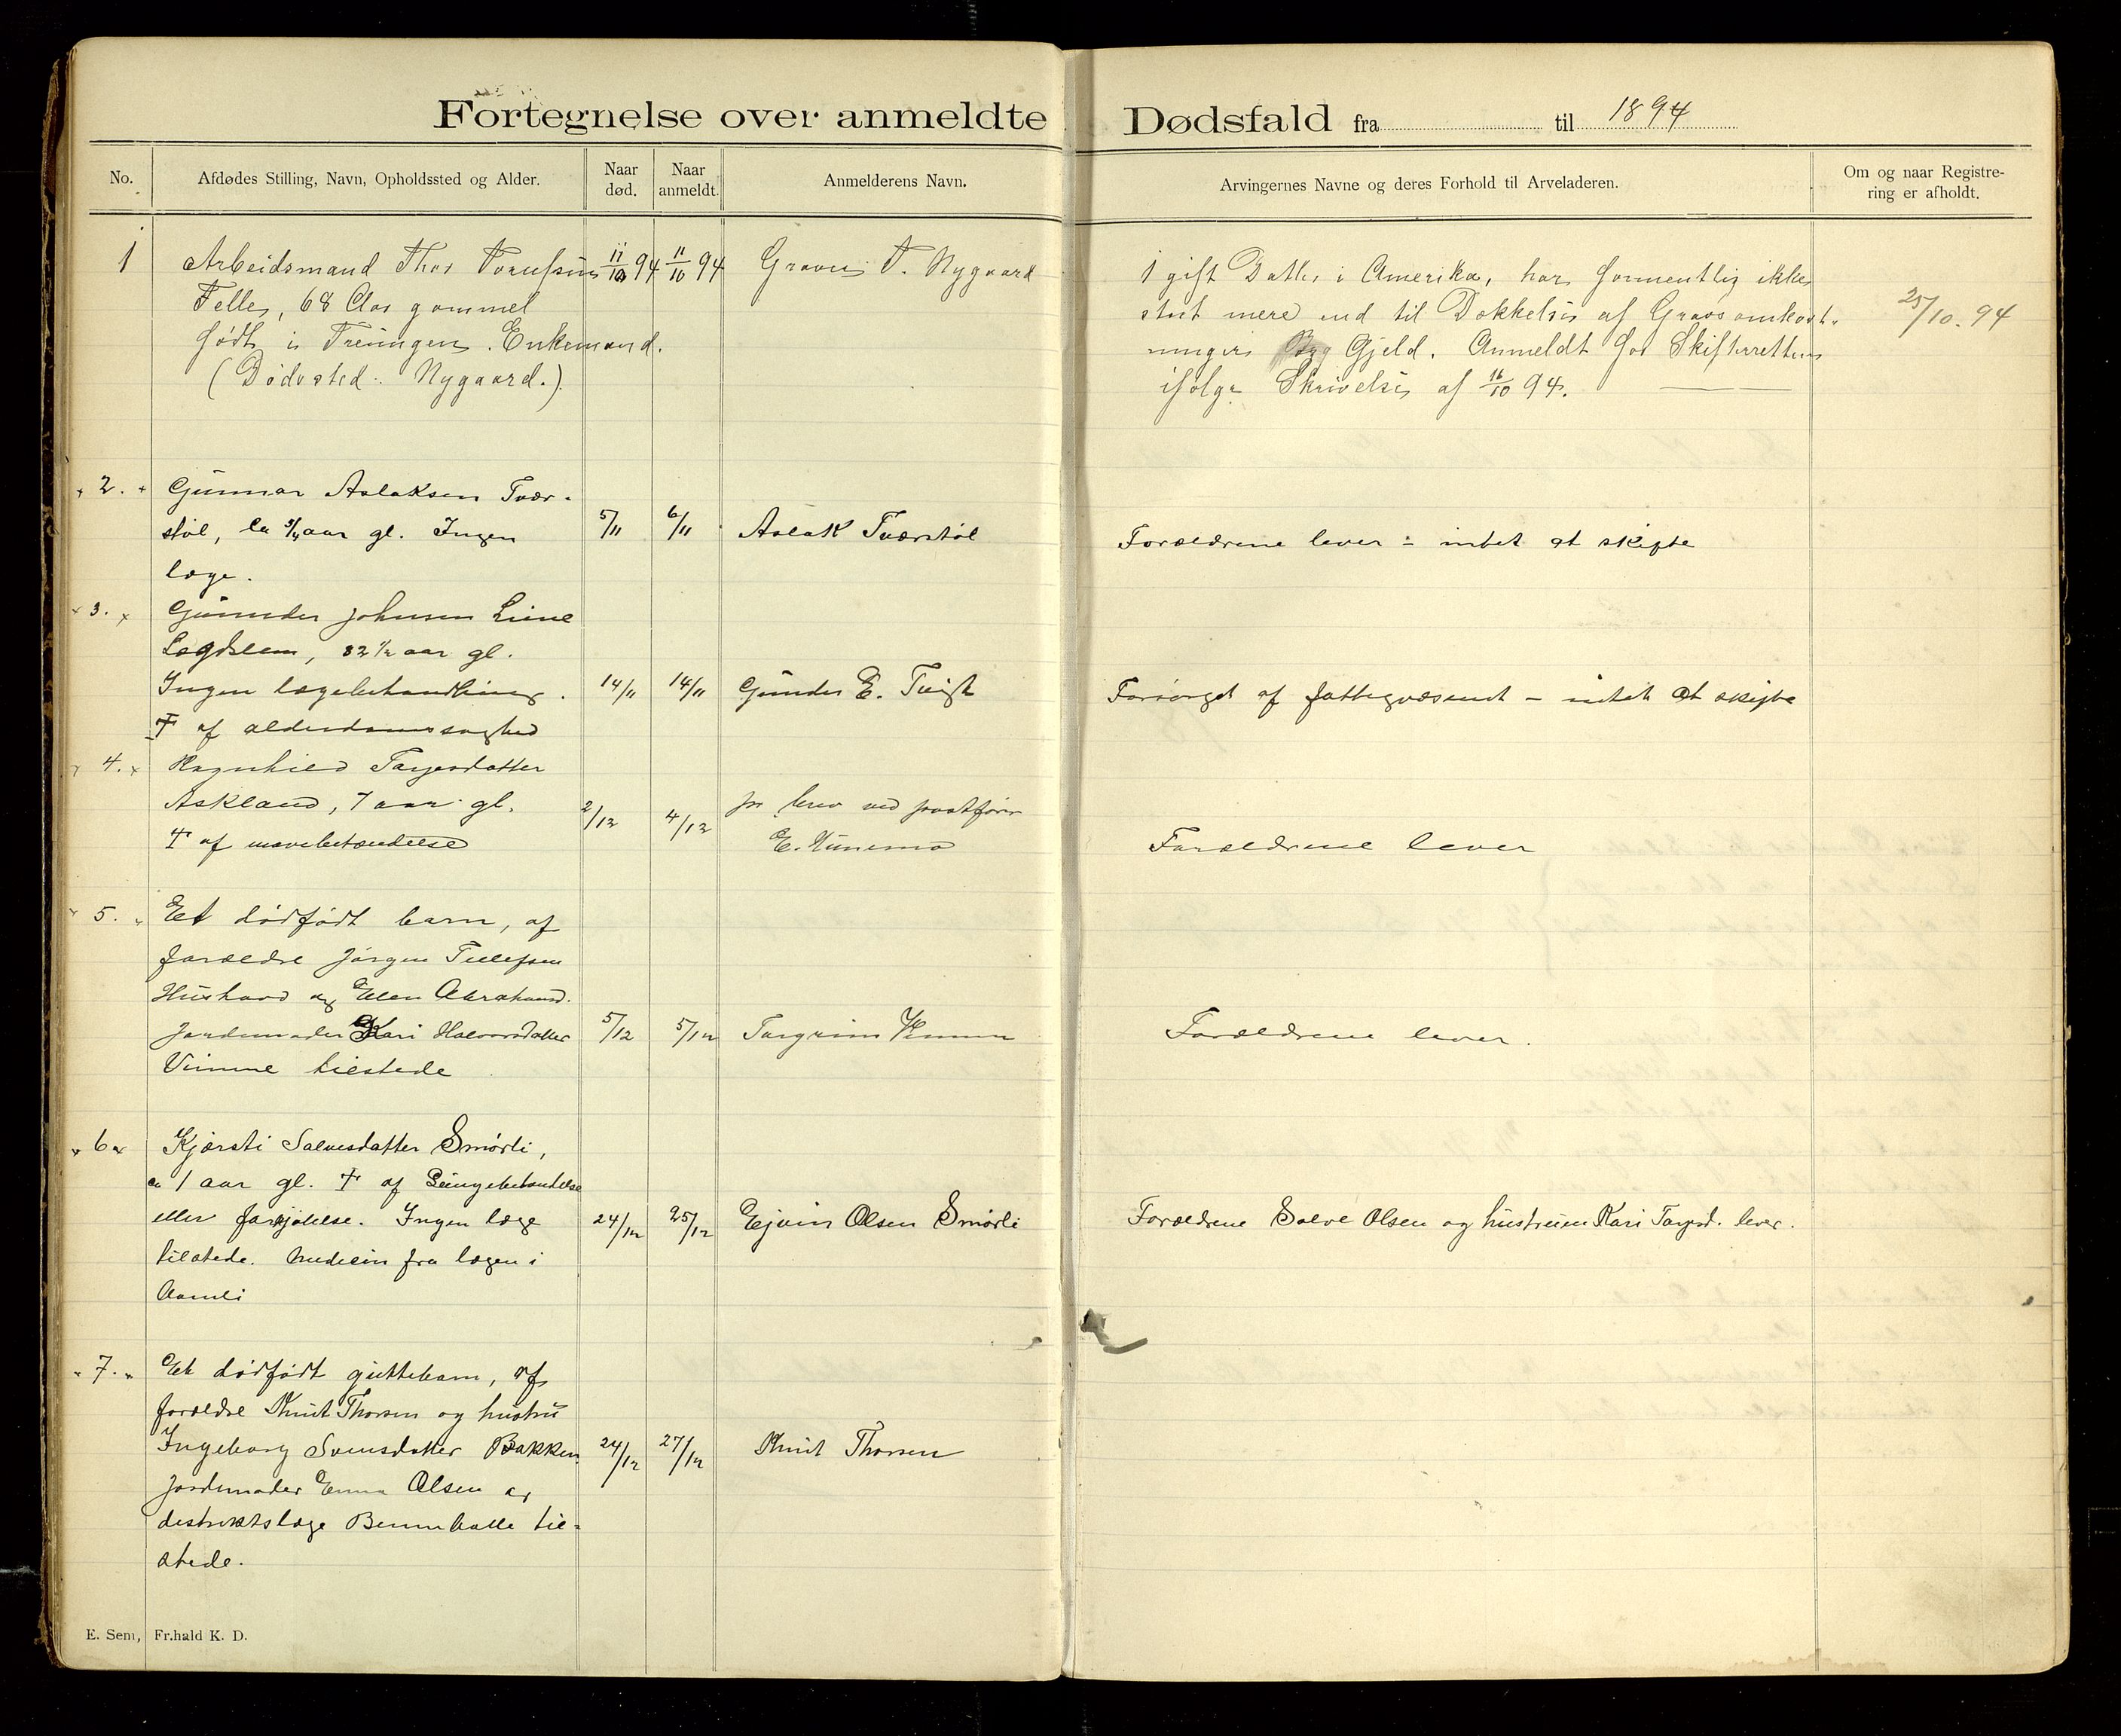 Fortegnelse over anmeldte Dødsfald fra til 1894
No.
Afdødes Stilling, Navn, Opholdssted og Alder.
Naar død.
Naar anmeldt.
Anmelderens Navn.
Arvingernes Navne og deres Forhold til Arveladeren.
Om og naar Registre-
ring er afholdt.
1
Arbeidsmand Thor
Felle, 68 Aar gammel
født i Treungen. Enkemand.
(Dødssted: Nygaard.)
11/10 94
11/10 94
T. Nygaard
1 gift Datter i Amerika, har formentlig ikke
mere end til Dækkelse af Gravsomkost-
ninger Gjeld. Anmeldt for Skifteretten
ifølge Skrivelse af 16/10 94.
25/10. 94
2.
Gunnar Aslaksen Tvær-
støl, ca 3/4 aar gl. Ingen
læge.
5/11
6/11
Aslak Tværstøl
Forældrene lever - intet at skifte
3.
Gunder Johnsen
82 1/2 aar gl.
Ingen lægebehandling.
† af alderdomssvaghed
14/11
14/11
Gunder E. Tveit
Forsørget af fattigvæsenet - intet at skifte
4.
Ragnhild Targesdatter
Askland, 7 aar gl.
† af mavebetændelse
2/12
4/12
pr brev ved postfører
E. Hunemo
Forældrene lever
5.
Et dødfødt barn, af
forældre Jørgen Tellefsen
og Elen Abrahamsd.
Jordemoder Kari Halvorsdatter
Vimme tilstede
5/12
5/12
Targrim
Forældrene lever.
6
Kjersti Salvesdatter Smørli,
ca 1 aar gl. † af Lungebetændelse
eller forkjølelse. Ingen læge
tilstede. Medicin fra lægen i
Aamli
24/12
25/12
Ejvin Olsen Smørli
Forældrene Salve Olsen og hustruen Kari Targesd. lever.
7.
Et dødfødt guttebarn, af
forældre Knut Thorsen og hustru
Ingeborg Svensdatter Bakken
Jordemoder Emma Olsen og
distriktslæge til-
stede.
24/12
27/12
Knut Thorsen
E. Sem, Fr.hald K. D.